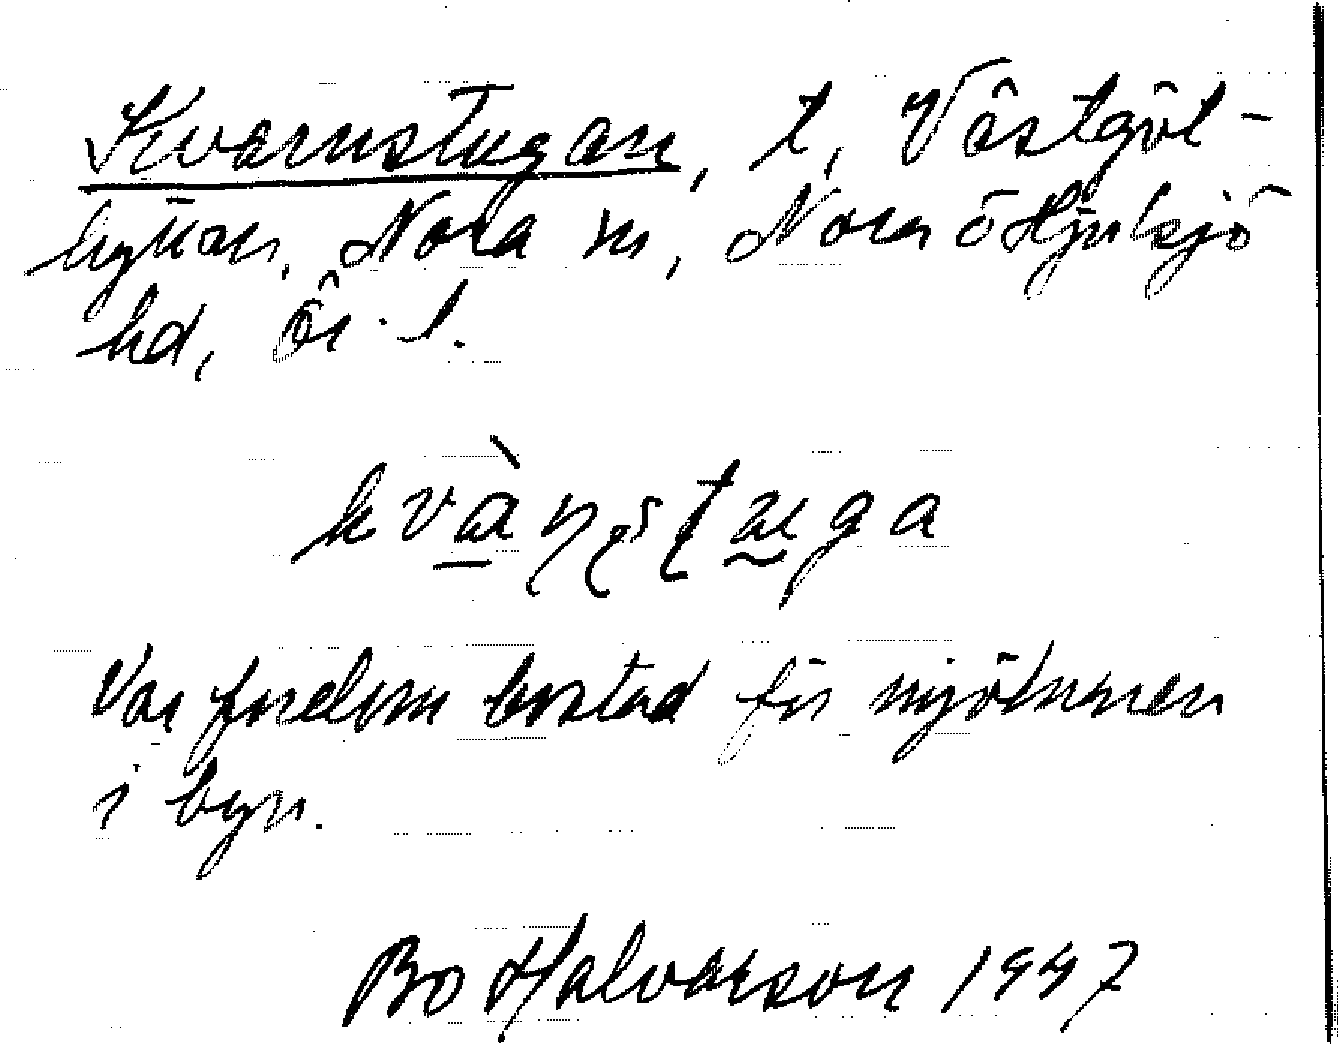 Kvarnstugan, t, Västgöt-
hyttan, Nora sn, Nora ö Hjulsjö
hd, Ör. l.
Var fordom bostad för mjölnaren
i byn.
Bo Halvarson 1947